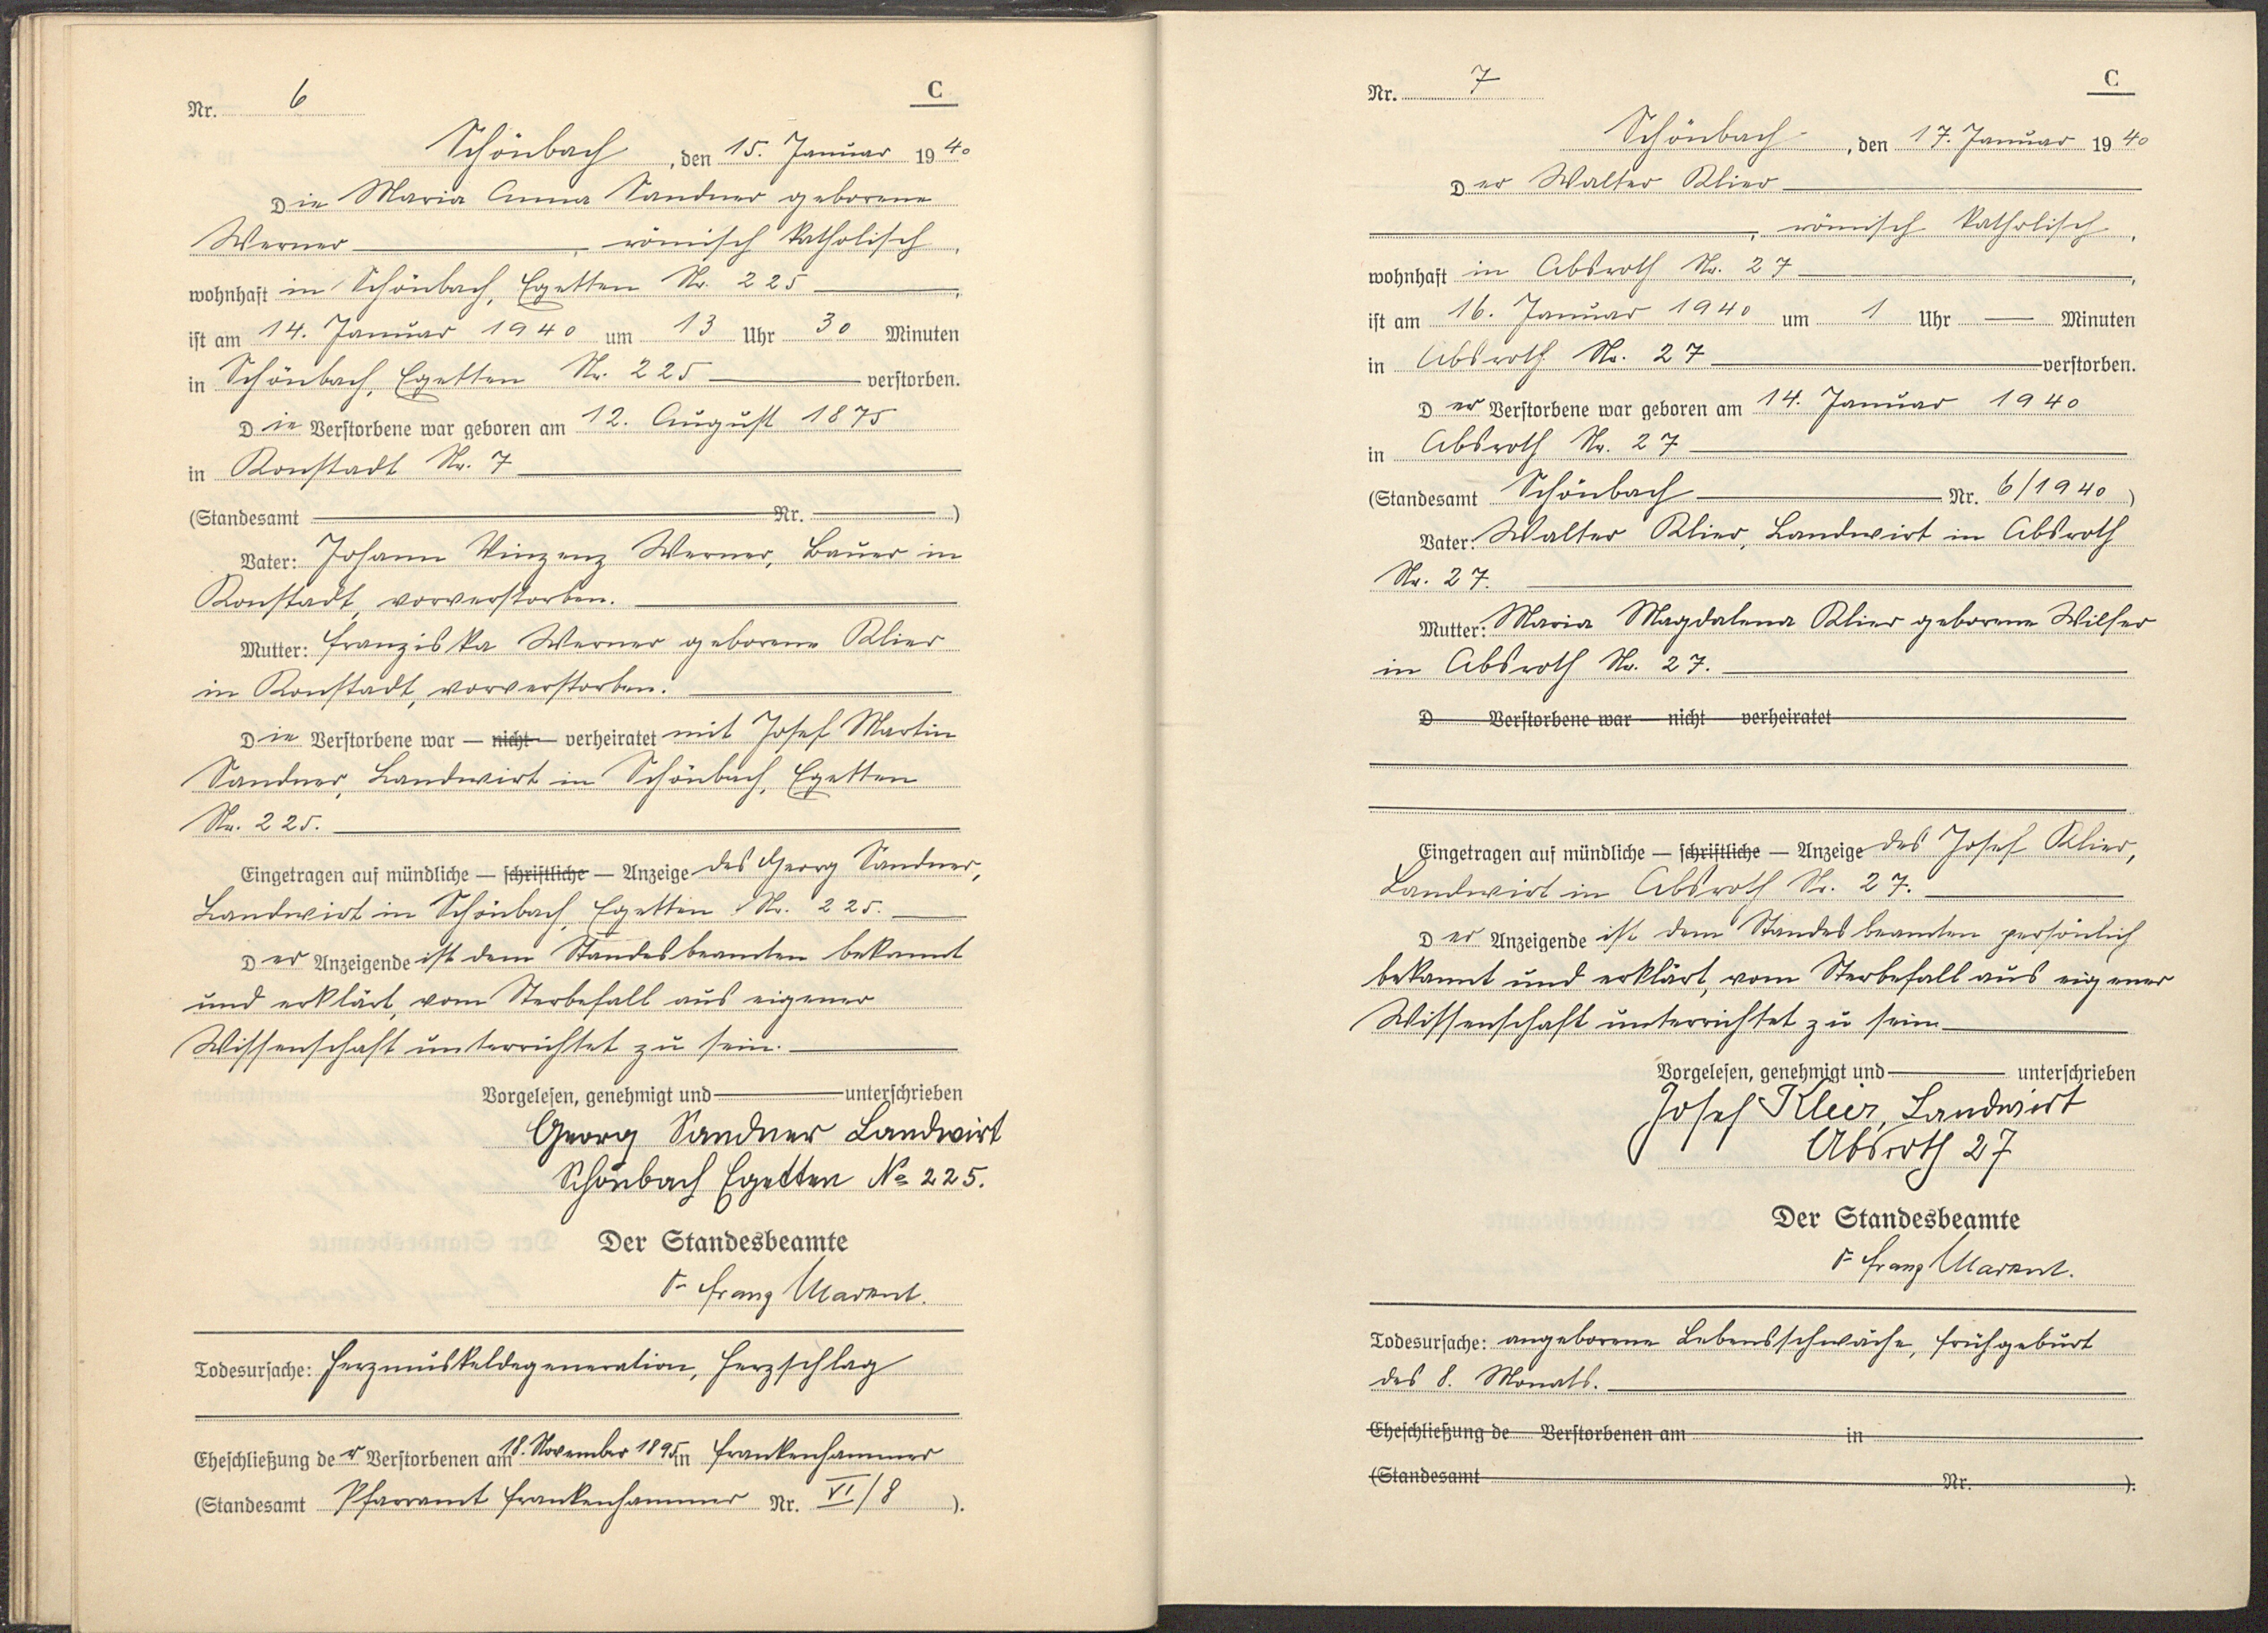 Nr. 6
C
Schönbach, den 15. Januar 1940
Die Maria Anna Sandner geborene
Werner, römisch katholisch,
wohnhaft in Schönbach, Egetten Nr. 225,
ist am 14. Januar 1940 um 13 Uhr 30 Minuten
in Schönbach, Egetten Nr. 225 verstorben.
Die Verstorbene war geboren am 12. August 1875
in Konstadt Nr. 7
(Standesamt Nr. )
Vater: Johann Vinzenz Werner, Bauer in
Konstadt, vorverstorben.
Mutter: Franziska Werner geborene Klier
in Konstadt, vorverstorben.
Die Verstorbene war — nicht — verheiratet mit Josef Martin
Sandner, Landwirt in Schönbach, Egetten
Nr. 225.
Eingetragen auf mündliche — schriftliche — Anzeige des Georg Sandner,
Landwirt in Schönbach, Egetten Nr. 225.
Der Anzeigende ist dem Standesbeamten bekannt
und erklärt, vom Sterbefall aus eigener
Wissenschaft unterrichtet zu sein.
Vorgelesen, genehmigt und unterschrieben
Georg Sandner Landwirt
Schönbach Egetten No 225.
Der Standesbeamte
Franz
Todesursache: Herzmuskeldegeneration, Herzschlag
Eheschließung der Verstorbenen am 18. November 1895 in Frankenhammer
(Standesamt Pfarramt Frankenhammer Nr. VI/8 ).
Nr. 7
C
Schönbach, den 17. Januar 1940
Der Walter Klier
, römisch katholisch,
wohnhaft in Absroth Nr. 27,
ist am 16. Januar 1940 um 1 Uhr — Minuten
in Absroth Nr. 27 verstorben.
Der Verstorbene war geboren am 14. Januar 1940
in Absroth Nr. 27
(Standesamt Schönbach Nr. 6/1940 )
Vater: Walter Klier, Landwirt in Absroth
Nr. 27.
Mutter: Maria Magdalena Klier geborene Wilfer
in Absroth Nr. 27.
D Verstorbene war — nicht — verheiratet
Eingetragen auf mündliche — schriftliche — Anzeige des Josef Klier,
Landwirt in Absroth Nr. 27.
Der Anzeigende ist dem Standesbeamten persönlich
bekannt und erklärt, vom Sterbefall aus eigener
Wissenschaft unterrichtet zu sein
Vorgelesen, genehmigt und unterschrieben
Josef Klier, Landwirt
Absroth 27
Der Standesbeamte
Franz
Todesursache: angeborene Lebensschwäche, Frühgeburt
des 8. Monats.
Eheschließung de Verstorbenen am in
(Standesamt Nr. ).